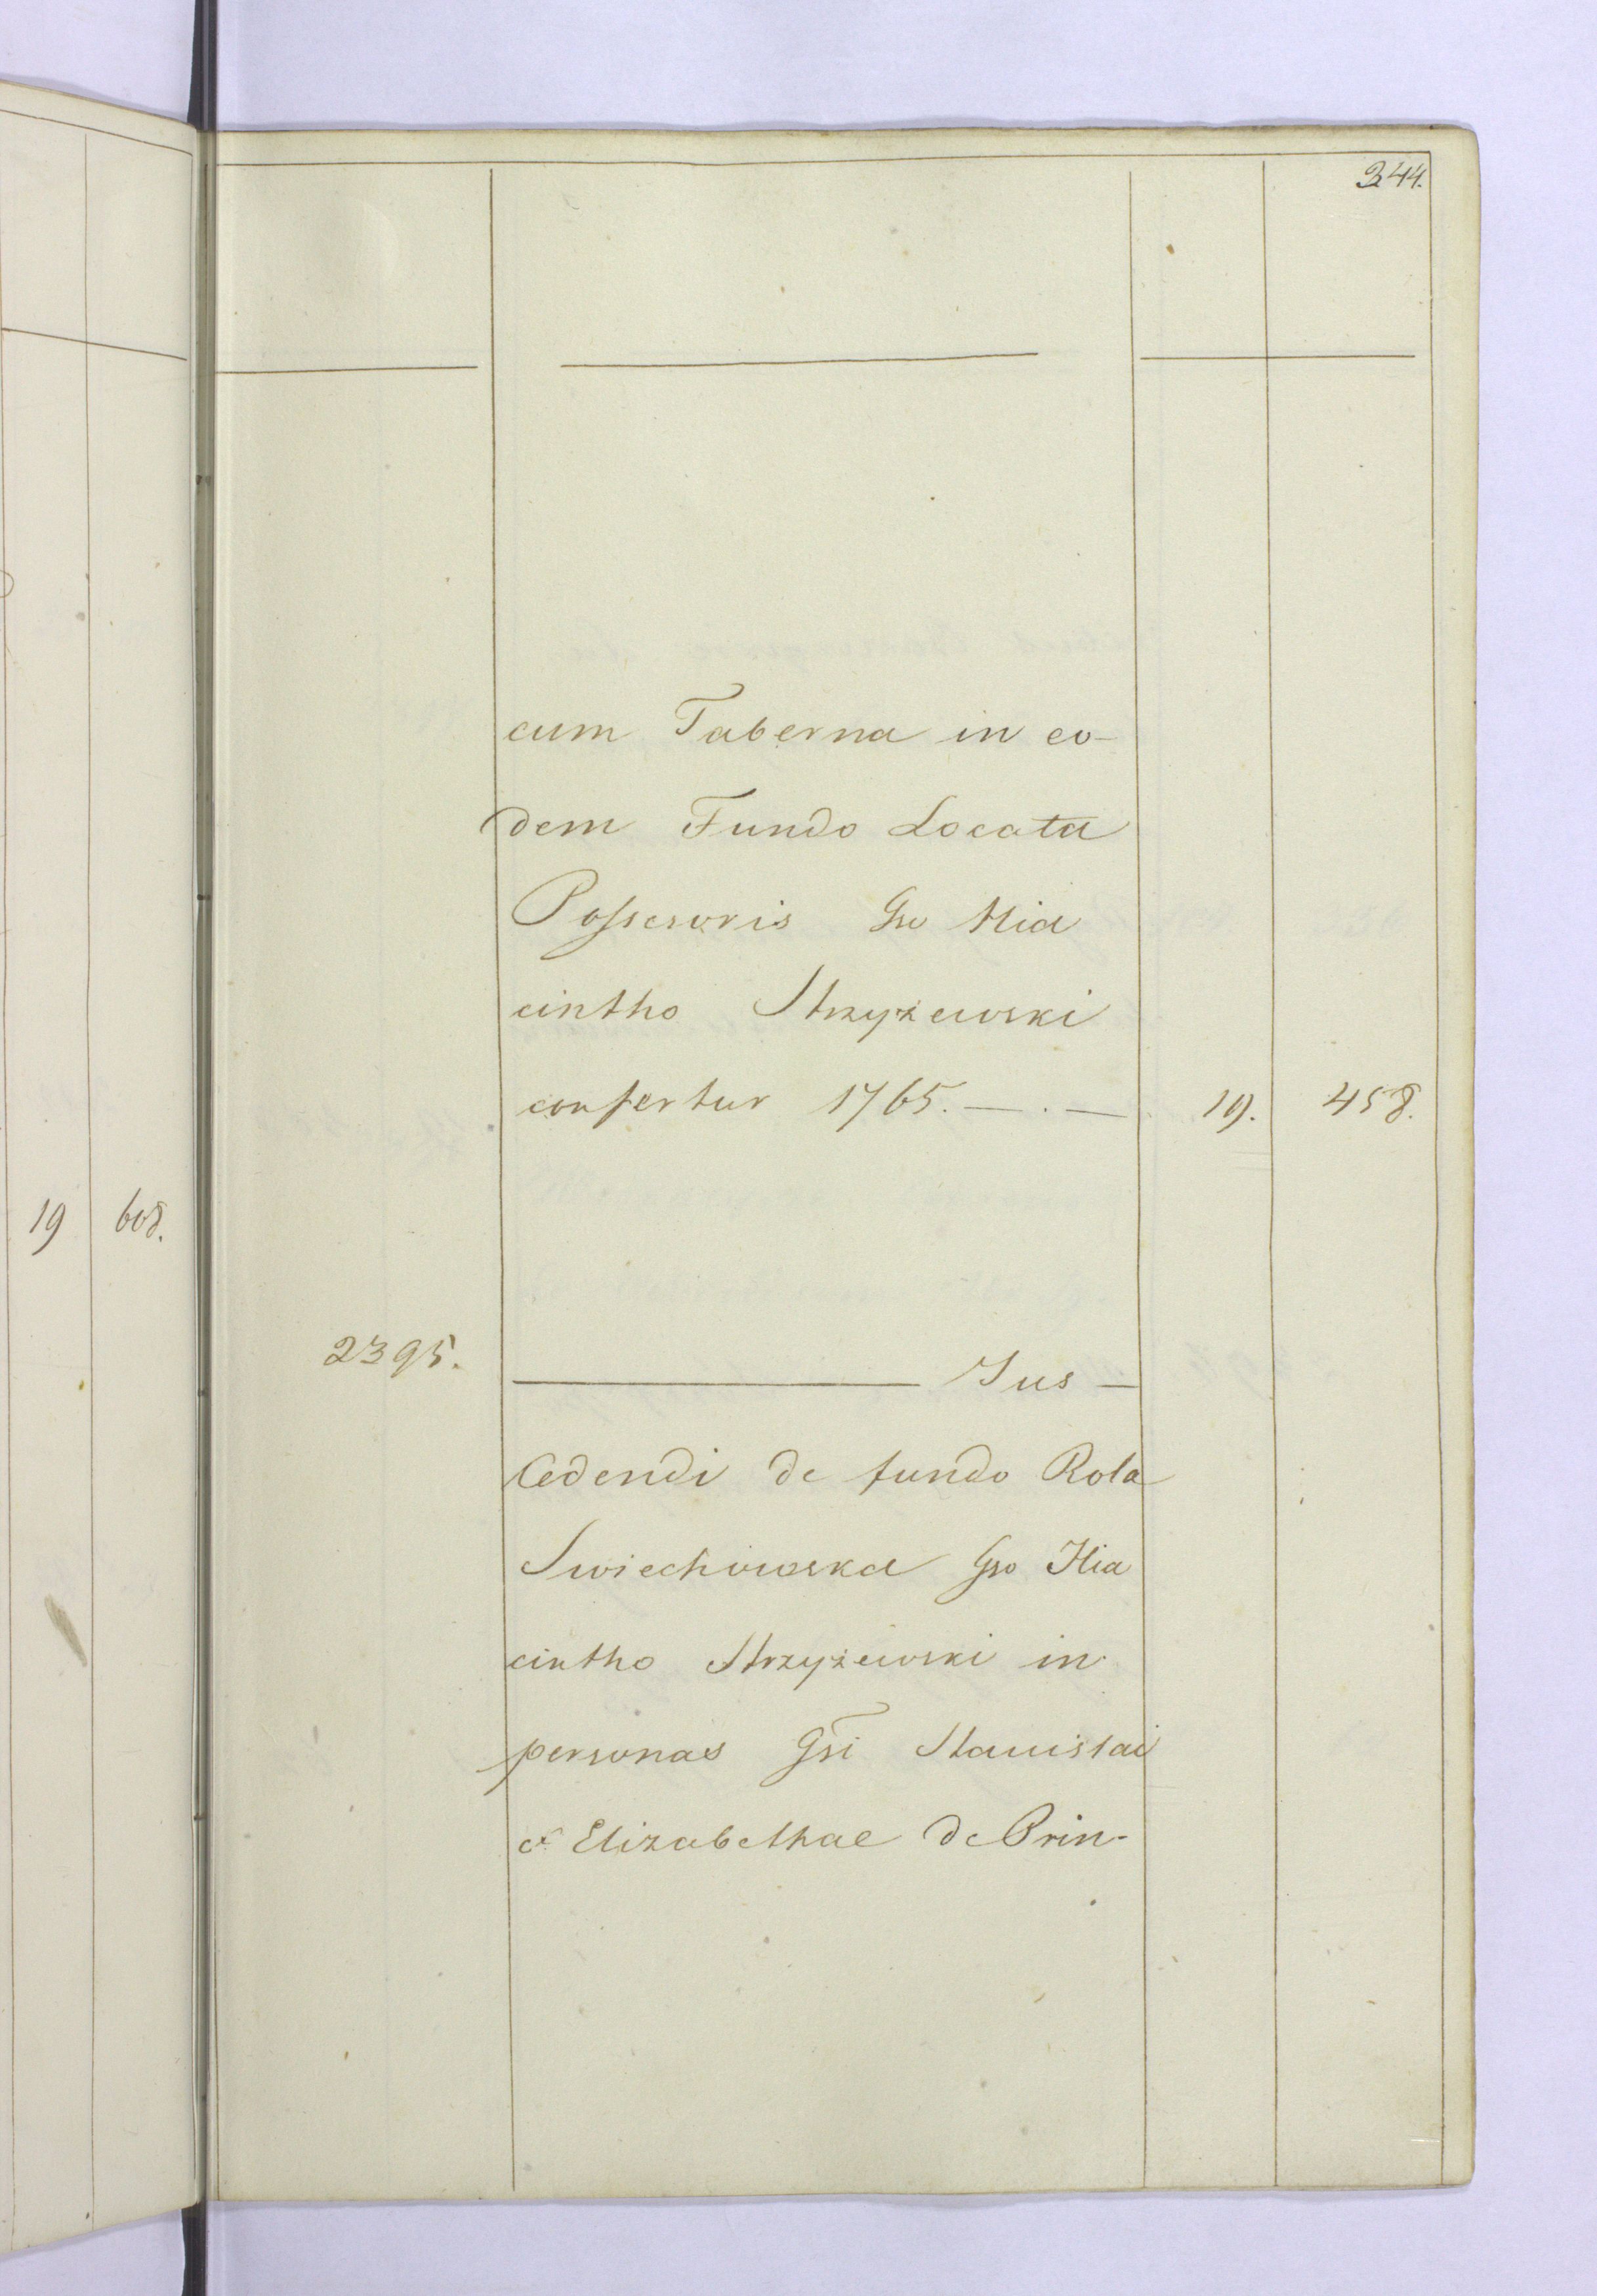 344.
cum Taberna in eo-
dem Fundo Locata
Possesoris Gso Hia
cintho Strzyżewski
confertur 1765. — . — 19. 458.
19 608.
2395. — Jus —
Cedendi de fundo Rola
Swiechowska Gso Hia
cintho Strzyżewski in
personas Gsi Stanislai
et Elizabethae de Prin-